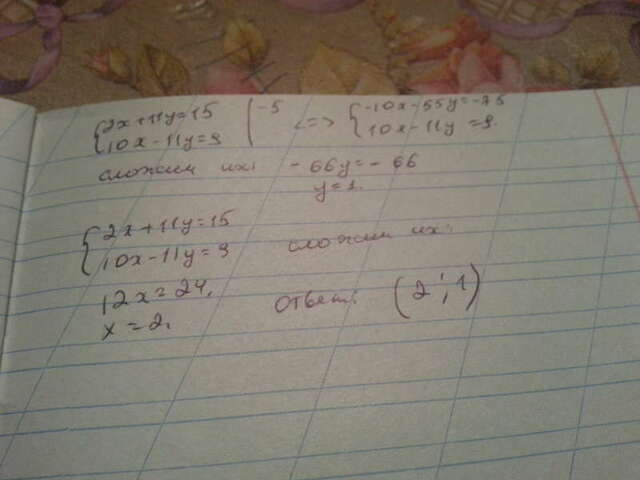 {2x+11y=15 |-5 <=> {-10x-55y=-75
{10x-11y=9 {10x-11y=9.
сложим их: -66y=-66
y=1.
{2x+11y=15
{10x-11y=9 сложим их:
12x=24.
x=2. Ответ: (2;1)